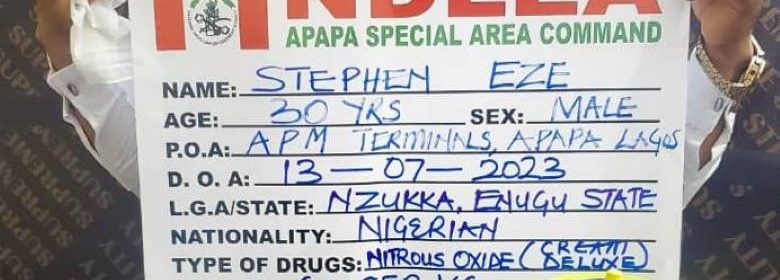 NDLEA
APAPA SPECIAL AREA COMMAND
NAME: STEPHEN EZE
AGE: 30 YRS SEX: MALE
P.O.A: APM TERMINALS, APAPA LAGOS
D. O. A: 13-07-2023
L.G.A/STATE: NZUKKA, ENUGU STATE
NATIONALITY: NIGERIAN
TYPE OF DRUGS: NITROUS OXIDE (CREAM DELUXE)